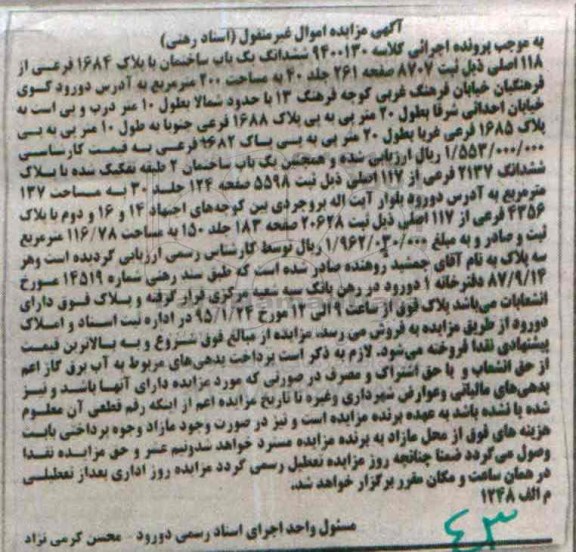 آگهی مزایده اموال غیرمنقول (اسناد رهنی)
به موجب پرونده اجرائی کلاسه ۹۴۰۰۱۳۰ ششدانگ یک باب ساختمان با پلاک ۱۶۸۴ فرعی از
۱۱۸ اصلی ذیل ثبت ۸۷۰۷ صفحه ۲۶۱ جلد ۴۰ به مساحت ۲۰۰ مترمربع به آدرس دورود کوی
فرهنگیان خیابان فرهنگ غربی کوچه فرهنگ ۱۳ با حدود شمالا بطول ۱۰ متر درب و پی است به
خیابان احداثی شرقا بطول ۲۰ متر پی به پی پلاک ۱۶۸۸ فرعی جنوبا به طول ۱۰ متر پی به پی
پلاک ۱۶۸۵ فرعی غربا بطول ۲۰ متر پی به پی پلاک ۱۶۸۲ فرعی به قیمت کارشناسی
۱/۵۵۳/۰۰۰/۰۰۰ ریال ارزیابی شده و همچنین یک باب ساختمان ۲ طبقه تفکیک شده با پلاک
ششدانگ ۲۱۳۷ فرعی از ۱۱۷ اصلی ذیل ثبت ۵۵۹۸ صفحه ۱۲۴ جلد ۳۰ به مساحت ۱۳۷
مترمربع به آدرس دورود بلوار آیت اله بروجردی بین کوچه‌های اجتهاد ۱۴ و ۱۶ و دوم با پلاک
۴۳۵۶ فرعی از ۱۱۷ اصلی ذیل ثبت ۲۰۶۲۸ صفحه ۱۸۳ جلد ۱۵۰ به مساحت ۱۱۶/۷۸ مترمربع
ثبت و صادر و به مبلغ ۱/۹۶۲/۰۳۰/۰۰۰ ریال توسط کارشناس رسمی ارزیابی گردیده است وهر
سه پلاک به نام آقای جمشید روهنده صادر شده است که طبق سند رهنی شماره ۱۴۵۱۹ مورخ
۸۷/۹/۱۴ دفترخانه ۱ دورود در رهن بانک سپه شعبه مرکزی قرار گرفته و پلاک فوق دارای
انشعابات می‌باشد پلاک فوق از ساعت ۹ الی ۱۲ مورخ ۹۵/۱/۲۴ در اداره ثبت اسناد و املاک
دورود از طریق مزایده به فروش می رسد. مزایده از مبالغ فوق شروع و به بالاترین قیمت
پیشنهادی نقدا فروخته می‌شود. لازم به ذکر است پرداخت بدهی‌های مربوط به آب برق گاز اعم
از حق انشعاب و یا حق اشتراک و مصرف در صورتی که مورد مزایده دارای آنها باشد و نیز
بدهی‌های مالیاتی وعوارض شهرداری وغیره تا تاریخ مزایده اعم از اینکه رقم قطعی آن معلوم
شده یا نشده باشد به عهده برنده مزایده است و نیز در صورت وجود مازاد وجوه پرداختی بابت
هزینه های فوق از محل مازاد به برنده مزایده مسترد خواهد شدونیم عشر و حق مزایده نقدا
وصول می‌گردد ضمنا چنانچه روز مزایده تعطیل رسمی گردد مزایده روز اداری بعداز تعطیلی
در همان ساعت و مکان مقرر برگزار خواهد شد.
م الف ۱۲۴۸
مسئول واحد اجرای اسناد رسمی دورود - محسن کرمی نژاد